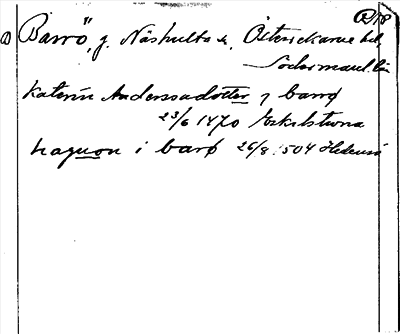 D18
D Barrö, g. Näshulta sn, Österrekarne hd,
Södermanl. län
katerin Anderssadotter j barrø
23/6 1470 Eskilstuna
haquon i barø 26/8 1504